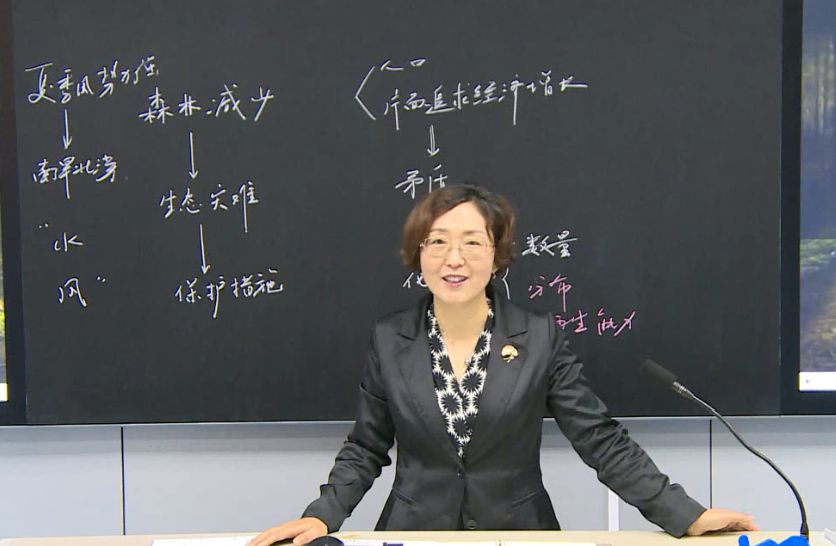 夏季风势力强
南旱北涝
"水
风"
森林减少
生态灾难
保护措施
人口
片面追求经济增长
矛盾
数量
分布
再生能力